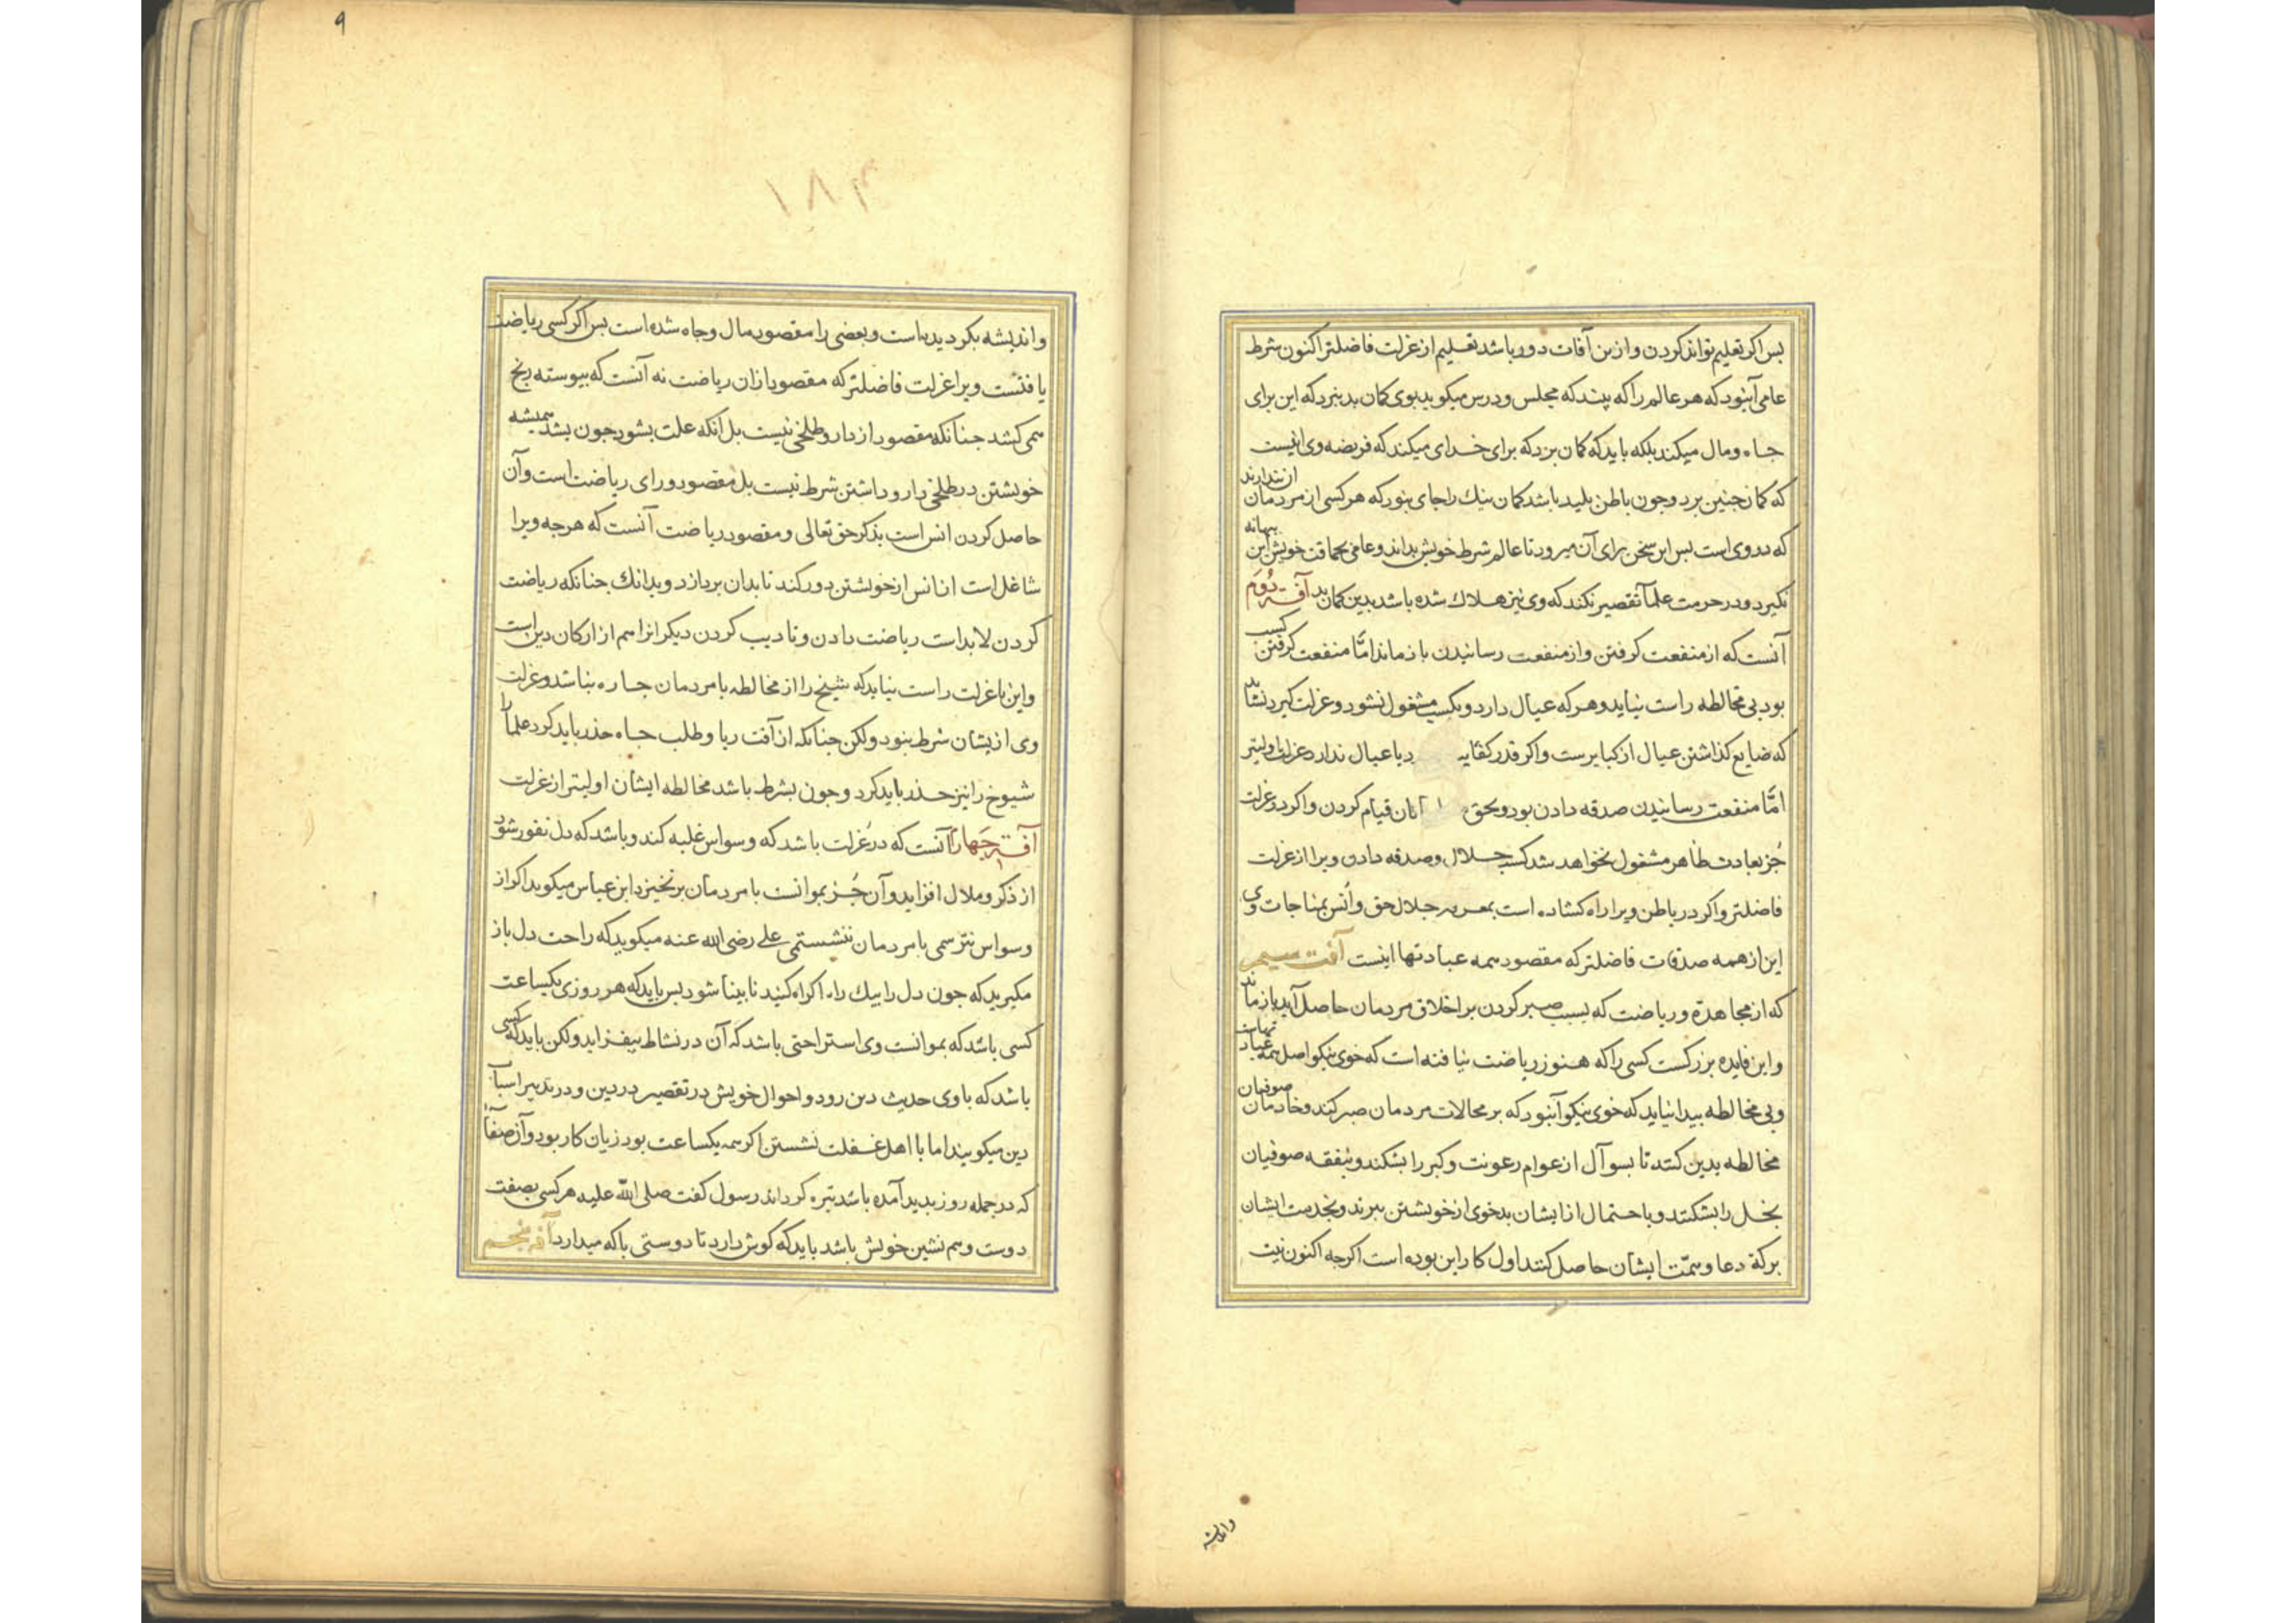 بس اکر تعلیم تواند کردن و ازین آفات دور باشد تعلیم از عزلت فاضلتر اکنون شرط
عامی آنبود که هر عالم را که بیند که مجلس و درس میکوید بوی کمان بد نبرد که این برای
جاه و مال میکند بلکه باید که کمان برد که برای خدای میکند که فریضه وی اینست
که کمان جنین برد و جون باطن بلید باشد کمان نیك را جای نبود که هر کسی از مردمان آن بندارند
که در وی است بس این سخن برای آن میرود تا عالم شرط خویش بداند و عامی بحماقت خویش این بهانه
نکیرد و در حرمت علما تقصیر نکند که وی نیز هلاك شده باشد بدین کمان بد آفت دوم
آنست که از منفعت کرفتن و از منفعت رسانیدن باز ماند امّا منفعت کرفتن کسب
بود بی مخالطه راست نیاید و هر که عیال دارد و بکسب مشغول نشود و عزلت کیرد نشاید
که ضایع کذاشتن عیال از کبایرست و اکر قدر کفایه د یا عیال ندارد عزلت اولیتر
امّا منفعت رسانیدن صدقه دادن بود و بحق انان قیام کردن و اکر در عزلت
جُز بعادت ظاهر مشغول نخواهد شد کسب حلال و صدقه دادن ویرا از عزلت
فاضلتر و اکر در باطن ویرا راه کشاده است بمعرفه جلال حق و اُنس بمناجات وی
این از همه صدقات فاضلتر که مقصود همه عبادتها اینست آفت سیم
که از مجاهدة و ریاضت که بسبب صبر کردن بر اخلاق مردمان حاصل آید باز ماند
و این فایده بزرکست کسی را که هنوز ریاضت نیافته است که خوی نیکو اصل همه عبادتهاست
و بی مخالطه بیدا نیاید که خوی نیکو آنبود که بر محالات مردمان صبر کند و خادمان صوفیان
مخالطه بدین کنند تا بسوآل از عوام رعونت و کبر را بشکند و بنفقه صوفیان
بخل را بشکنند و باحتمال از ایشان بدخوی از خویشتن ببرند و بخدمت ایشان
برکة دعا و همّت ایشان حاصل کنند اول کار این بوده است اکرجه اکنون نیت
واندیشه
۹
۱۸۳
و اندیشه بکردیده است و بعضی را مقصود مال و جاه شده است بس اکر کسی ریاضت
یافتست ویرا عزلت فاضلتر که مقصود از ان ریاضت نه آنست که بیوسته رنج
همی کشد جنانکه مقصود از دارو طلخی نیست بل آنکه علت بشود جون بشد همیشه
خویشتن در طلخی دارو داشتن شرط نیست بل مقصود ورای ریاضت است و آن
حاصل کردن انس است بذکر حق تعالی و مقصود ریاضت آنست که هرجه ویرا
شاغل است از انس از خویشتن دور کند تا بدان بردازد و بدانك جنانکه ریاضت
کردن لابد است ریاضت دادن و تادیب کردن دیکرانرا هم از ارکان دین است
و این با عزلت راست نیاید که شیخ را از مخالطه با مردمان جاره نباشد و عزلت
وی از یشان شرط نبود ولکن جنانکه از آفت ریا و طلب جاه حذر باید کرد علما را
شیوخ را نیز حذر باید کرد و جون بشرط باشد مخالطه ایشان اولیتر از عزلت
آفت جهارم آنست که در عُزلت باشد که وسواس غلبه کند و باشد که دل نفور شود
از ذکر و ملال افزاید و آن جُز بموانست با مردمان برنخیزد ابن عباس میکوید اکر از
وسواس نترسمی با مردمان ننشستمی علی رضی الله عنه میکوید که راحت دل باز
مکیرید که جون دل را بیك راه اکراه کنید نابینا شود بس باید که هر روزی یکساعت
کسی باشد که بموانست وی استراحتی باشد که آن در نشاط بیفزاید ولکن باید که کسی
باشد که با وی حدیث دین رود و احوال خویش در تقصیر در دین و در تدبیر اسباب
دین میکویند اما با اهل غفلت نشستن اکر همه یکساعت بود زیان کار بود و آن صفا
که در جمله روز بدید آمده باشد تیره کرداند رسول کفت صلی الله علیه هر کسی بصفت
دوست و هم نشین خویش باشد باید که کوش دارد تا دوستی با که میدارد آفت بنجم